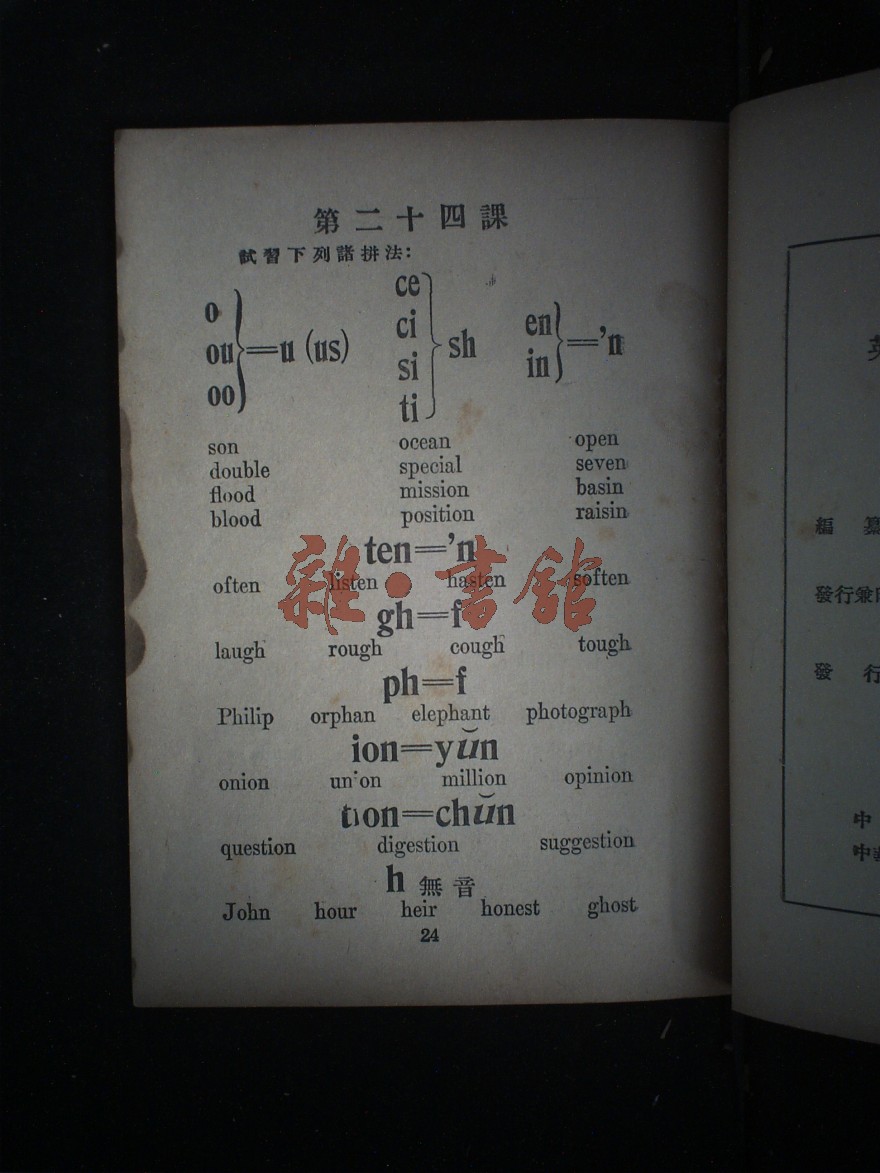 第二十四課
試習下列諸拼法：
o
ou =u (us)
oo
ce
ci
si
ti
sh
en
in
='n
son ocean open
double special seven
flood mission basin
blood position raisin
ten='n
often listen hasten soften
gh=f
laugh rough cough tough
ph=f
Philip orphan elephant photograph
ion=yŭn
onion union million opinion
tion=chŭn
question digestion suggestion
h 無音
John hour heir honest ghost
24
雜·書館
編
發行兼
發行
中
中